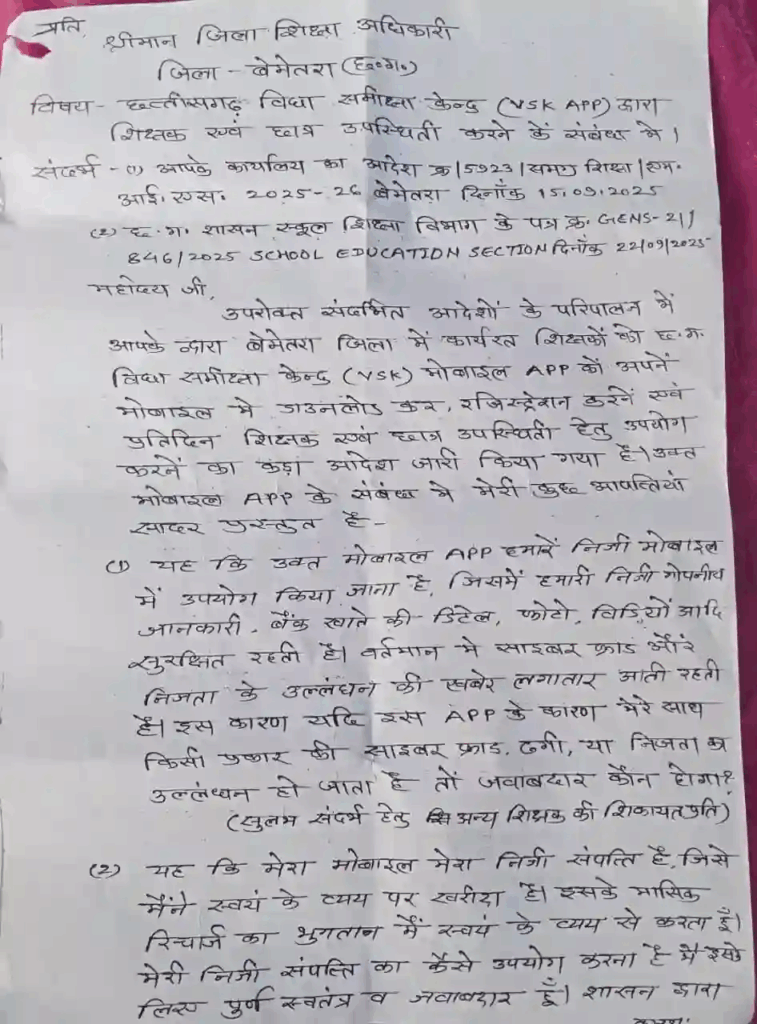 प्रति,
श्रीमान जिला शिक्षा अधिकारी
जिला - बेमेतरा (छ०ग०)
विषय - छत्तीसगढ़ विधा समीक्षा केन्द्र (VSK APP) द्वारा
शिक्षक एवं छात्र उपस्थिती करने के संबंध मे।
संदर्भ - (1) आपके कार्यालय का आदेश क्र/5923/समग्र शिक्षा/एम.
आई. एस. 2025-26 बेमेतरा दिनाँक 15.09.2025
(2) छ. ग. शासन स्कूल शिक्षा विभाग के पत्र क्र. GENS-21/
846/2025 SCHOOL EDUCATION SECTION दिनाँक 22/09/2025
महोदय जी,
उपरोक्त संदर्भित आदेशों के परिपालन में
आपके द्वारा बेमेतरा जिला में कार्यरत शिक्षकों को छ.ग.
विधा समीक्षा केन्द्र (VSK) मोबाइल APP को अपने
मोबाइल मे डाउनलोड कर, रजिस्ट्रेशन करनें एवं
प्रतिदिन शिक्षक एवं छात्र उपस्थिती हेतु उपयोग
करनें का कड़ा आदेश जारी किया गया है। उक्त
मोबाइल APP के संबंध मे मेरी कुछ आपत्तियां
सादर प्रस्तुत है -
(1) यह कि उक्त मोबाइल APP हमारें निजी मोबाइल
में उपयोग किया जाना है, जिसमें हमारी निजी गोपनीय
जानकारी, बैंक खाते की डिटेल, फोटो, विडियों आदि
सुरक्षित रहती है। वर्तमान मे साइबर फ्राड और
निजता के उल्लंघन की खबरे लगातार आती रहती
है। इस कारण यदि इस APP के कारण मेरे साथ
किसी प्रकार की साइबर फ्राड, ठगी, या निजता का
उल्लंघन हो जाता है तो जवाबदार कौन होगा?
(सुलभ संदर्भ हेतु अन्य शिक्षक की शिकायत प्रति)
(2) यह कि मेरा मोबाइल मेरा निजी संपत्ति है, जिसे
मैंने स्वयं के व्यय पर खरीदा है। इसके मासिक
रिचार्ज का भुगतान मैं स्वयं के व्यय से करता हूँ।
मेरी निजी संपत्ति का कैसे उपयोग करना है मैं इसके
लिए पुर्ण स्वतंत्र व जवाबदार हूँ। शासन द्वारा